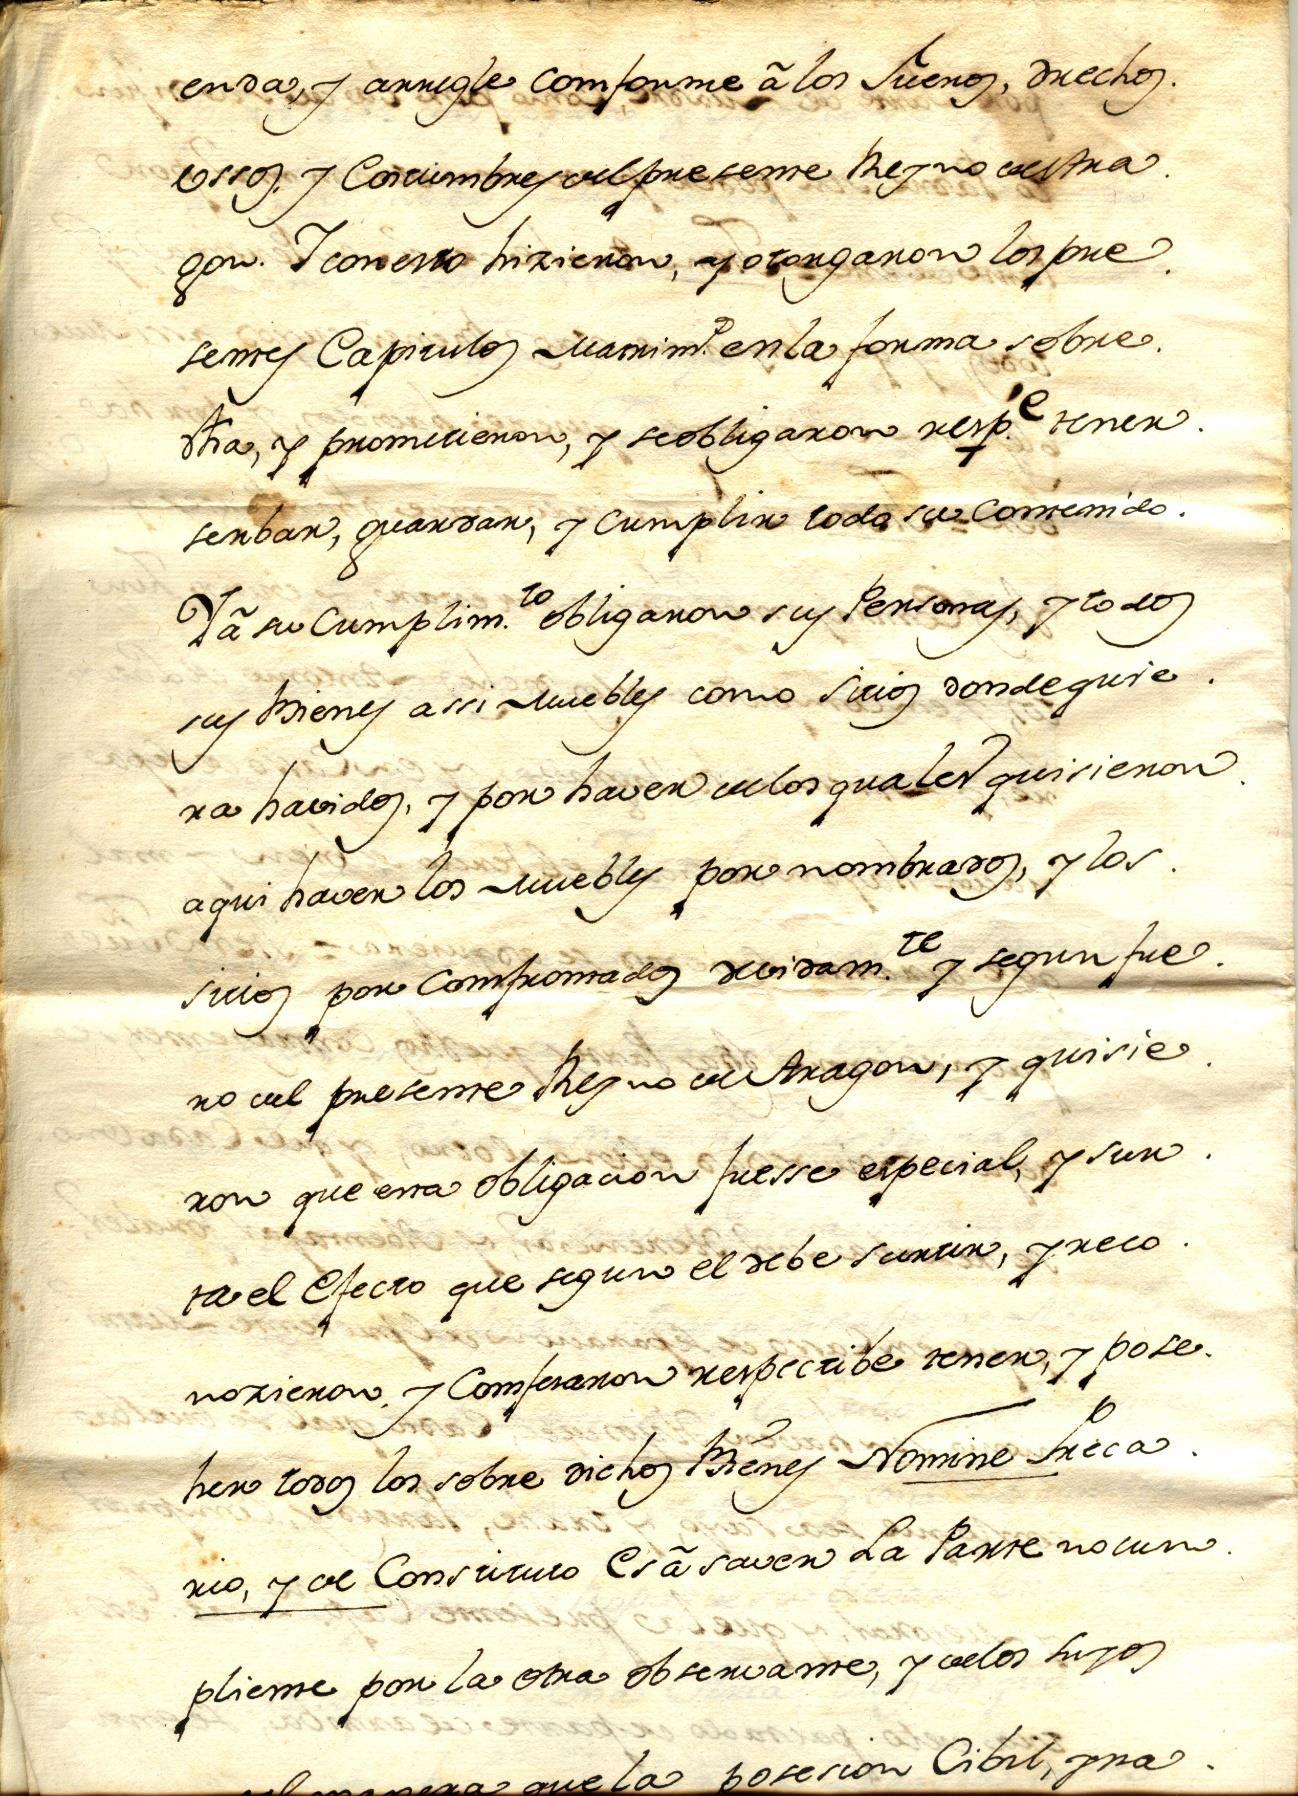 enda, y arregle comforme â los fueros, drechos.
ussos, y Costumbres del presente Reyno de Ara
gon. Y con esto hizieron, y otorgaron los pre
sentes Capitulos Matrim.s en la forma sobre.
dha, y prometieron, y se obligaron resp.e tener.
serbar, guardar, y cumplir todo su contenido.
Yâ su cumplim.to obligaron sus Personas, y todos
sus Bienes assi Muebles como sitios donde quie.
ra havidos, y por haver de los quales quisieron.
aqui haver los Muebles por nombrados, y los.
sitios por comfrontados devidam.te y segun fue.
ro del presente Reyno de Aragon, y quisie.
ron que esta obligacion fuesse especial, y sur.
ta el Efecto que segun el debe surtir, y reco.
nozieron, y Comfesaron respectibe tener, y pose.
her todos los sobre dichos Bienes Nomine Preca.
rio, y de Constituto Esâ saver La Parte no cum.
pliente por la otra observante, y de los suyos
manera que la posesion Cibil, y na.